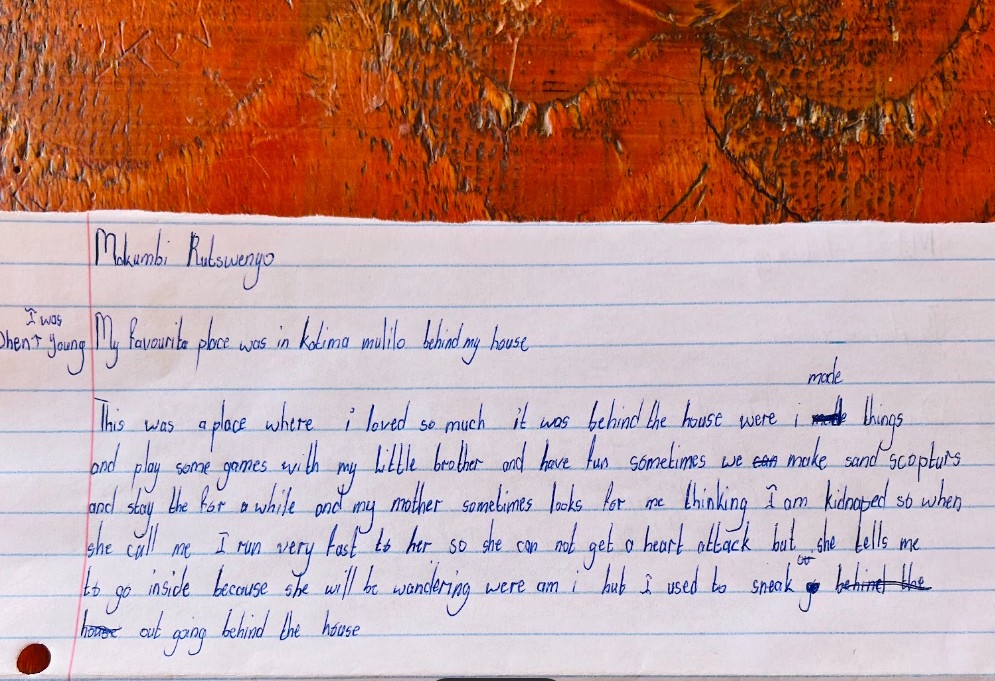 Mokumbi Rutswenyo
I was
When young My favourite place was in Katima mulilo behind my house
made
This was a place where i loved so much it was behind the house were i made things
and play some games with my little brother and have fun sometimes we can make sand scopturs
and stay the for a while and my mother sometimes looks for me thinking I am kidnaped so when
she call me I run very fast to her so she can not get a heart attack but she tells me
to go inside because she will be wandering were am i bub I used to sneak go behind the
house out going behind the house